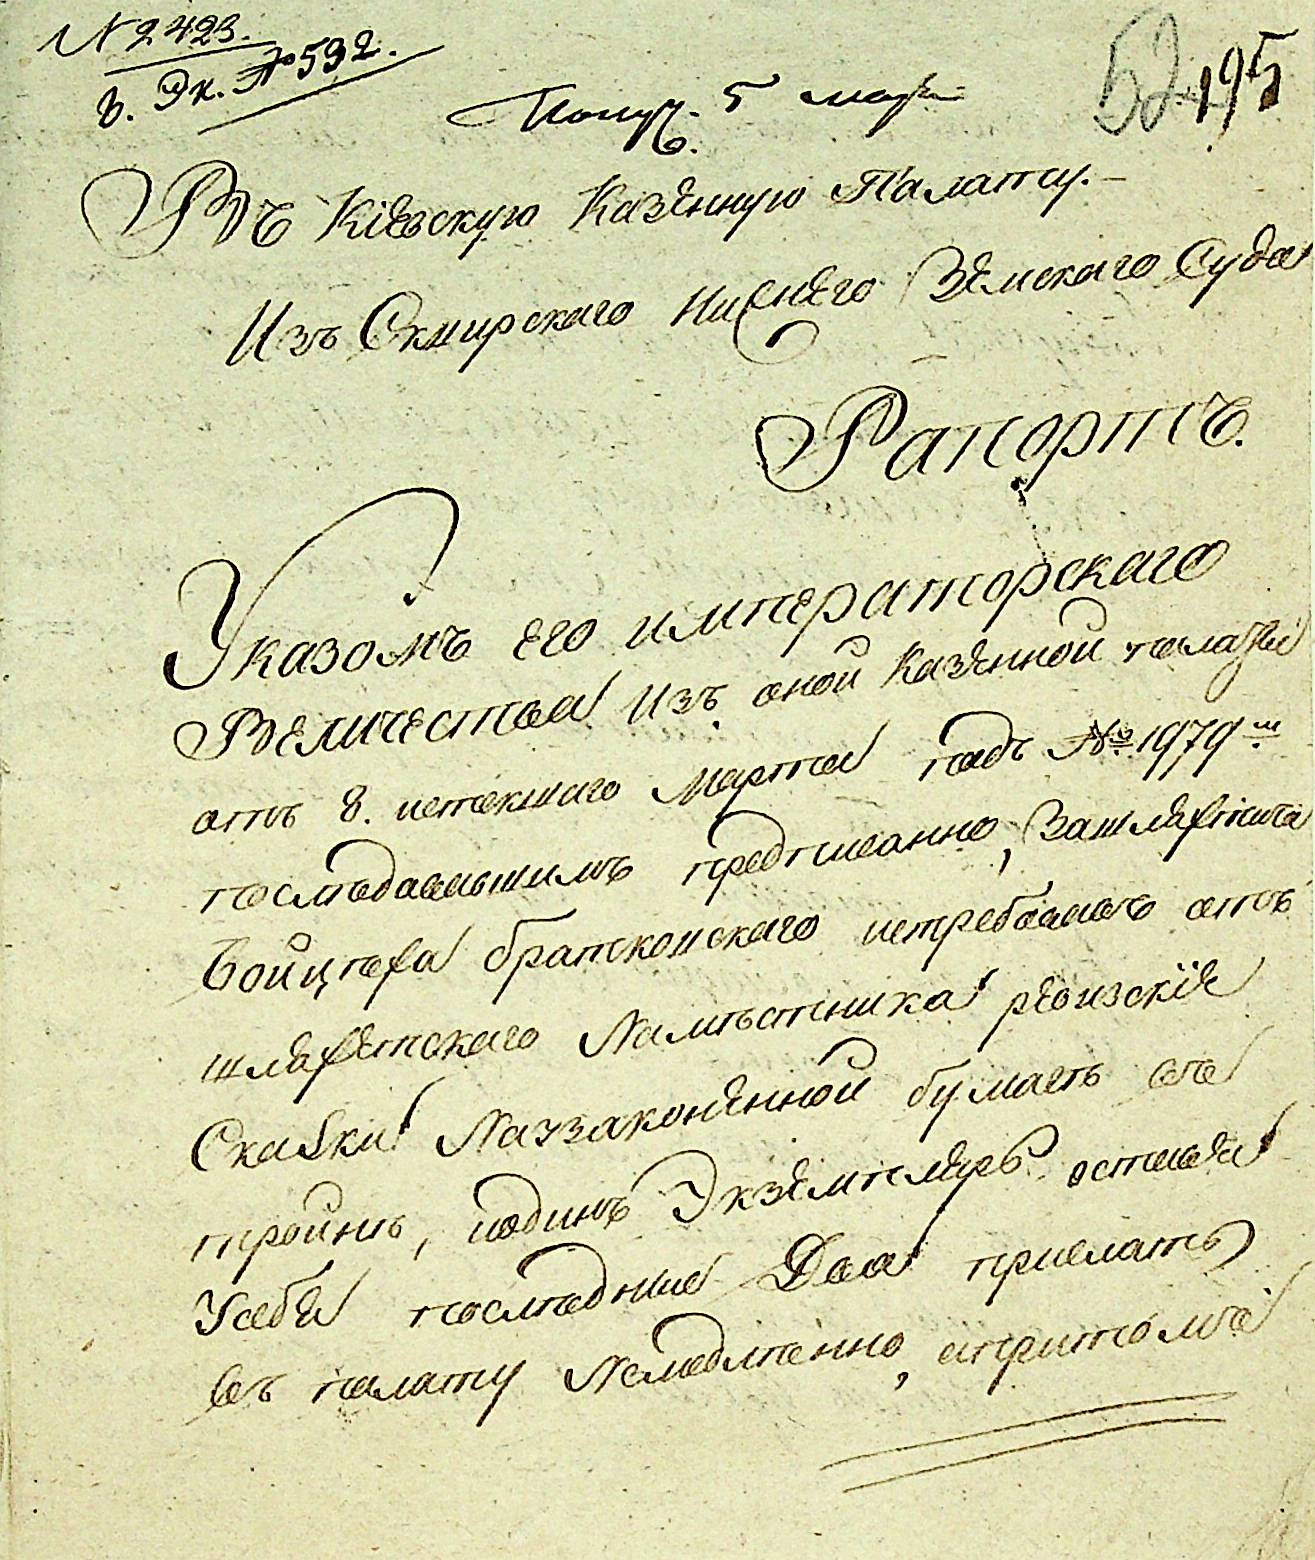 N 2423.
в. Эк. № 592.
Получ. 5 мая
52 195
Въ Кіевскую Казенную Палату.–
Изъ Сквирскаго Нижнего Земскаго Суда
Рапортъ.
Указомъ его императорскаго
Величества изъ оной казенной палаты
отъ 8. истекшаго Марта подъ № 1979м
последовавшимъ предписанно, зашляхтича
Войцеха братковскаго истребовать отъ
шляхетскаго Наместника ревизскіе
Скаски Наузаконенной бумагѣ въ
тройнѣ, иодинъ Экземпляръ оставя
Усебя последние Два прислать
въ палату Немедленно, спритомъ